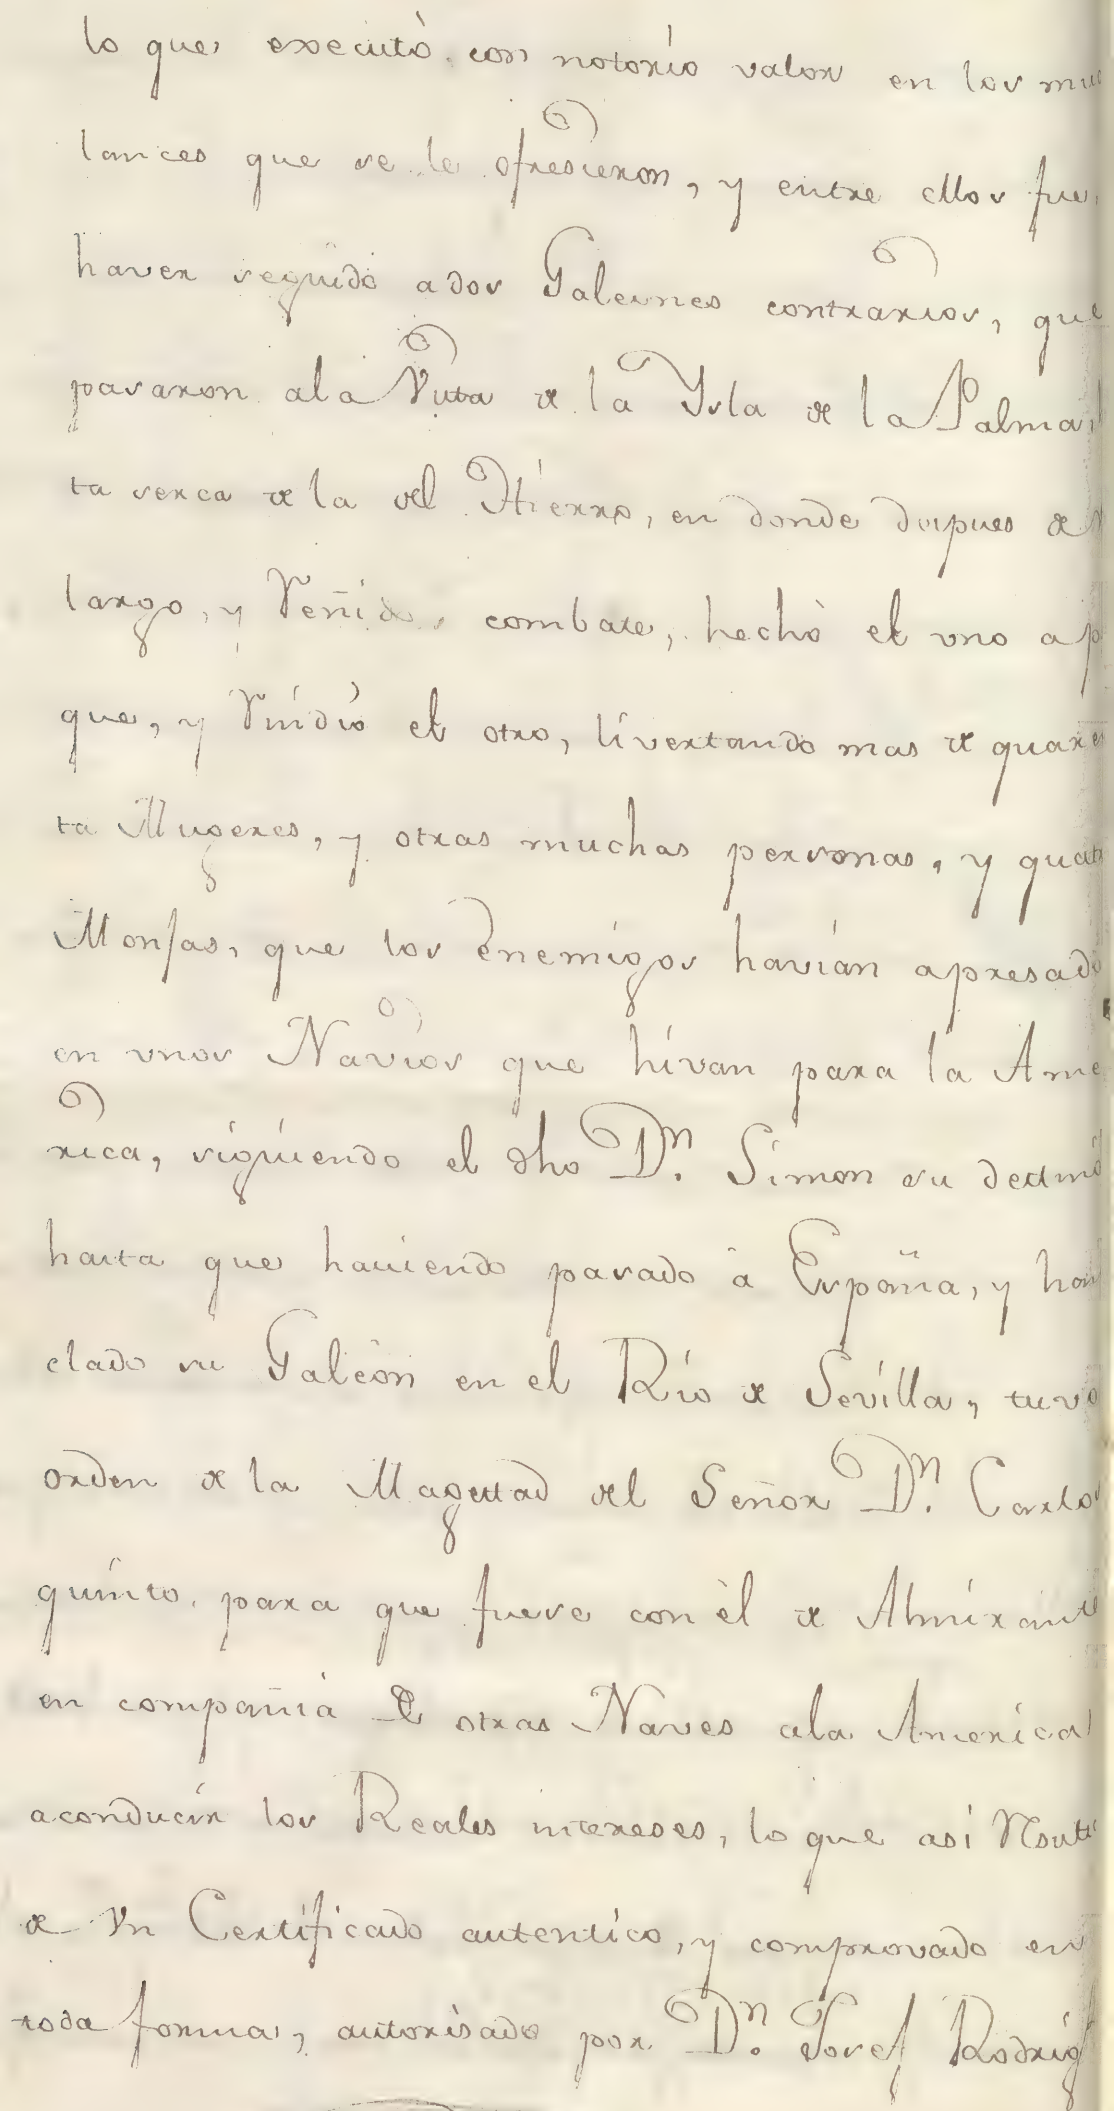 lo que executò con notorio valor en los mu
lances que se le ofresieron, y entre ellos fue
haver seguido a dos Galeones contrarios, que
pasaron a la Vista de la Ysla de la Palma
ta serca de la del Hierro, en donde despues de
largo, y Reñido combate, hechò el vno a p
que, y Rindiò el otro, livertando mas de quaren
ta Mugeres, y otras muchas personas, y quat
Monjas, que los Enemigos havian apresado
en vnos Navios que hivan para la Ame
rica, siguiendo el dho Dn. Simon su destino
hasta que haviendo pasado à España, y han
clado su Galeòn en el Rio de Sevilla, tuvo
orden de la Magestad del Señor Dn. Carlos
quinto para que fuese con èl de Almirante
en compañia de otras Naves a la America
a conducir los Reales intereses, lo que asi Rsult
de Vn Certificado autentico, y comprovado en
toda forma, autorisado por Dn. Josef Rodrig